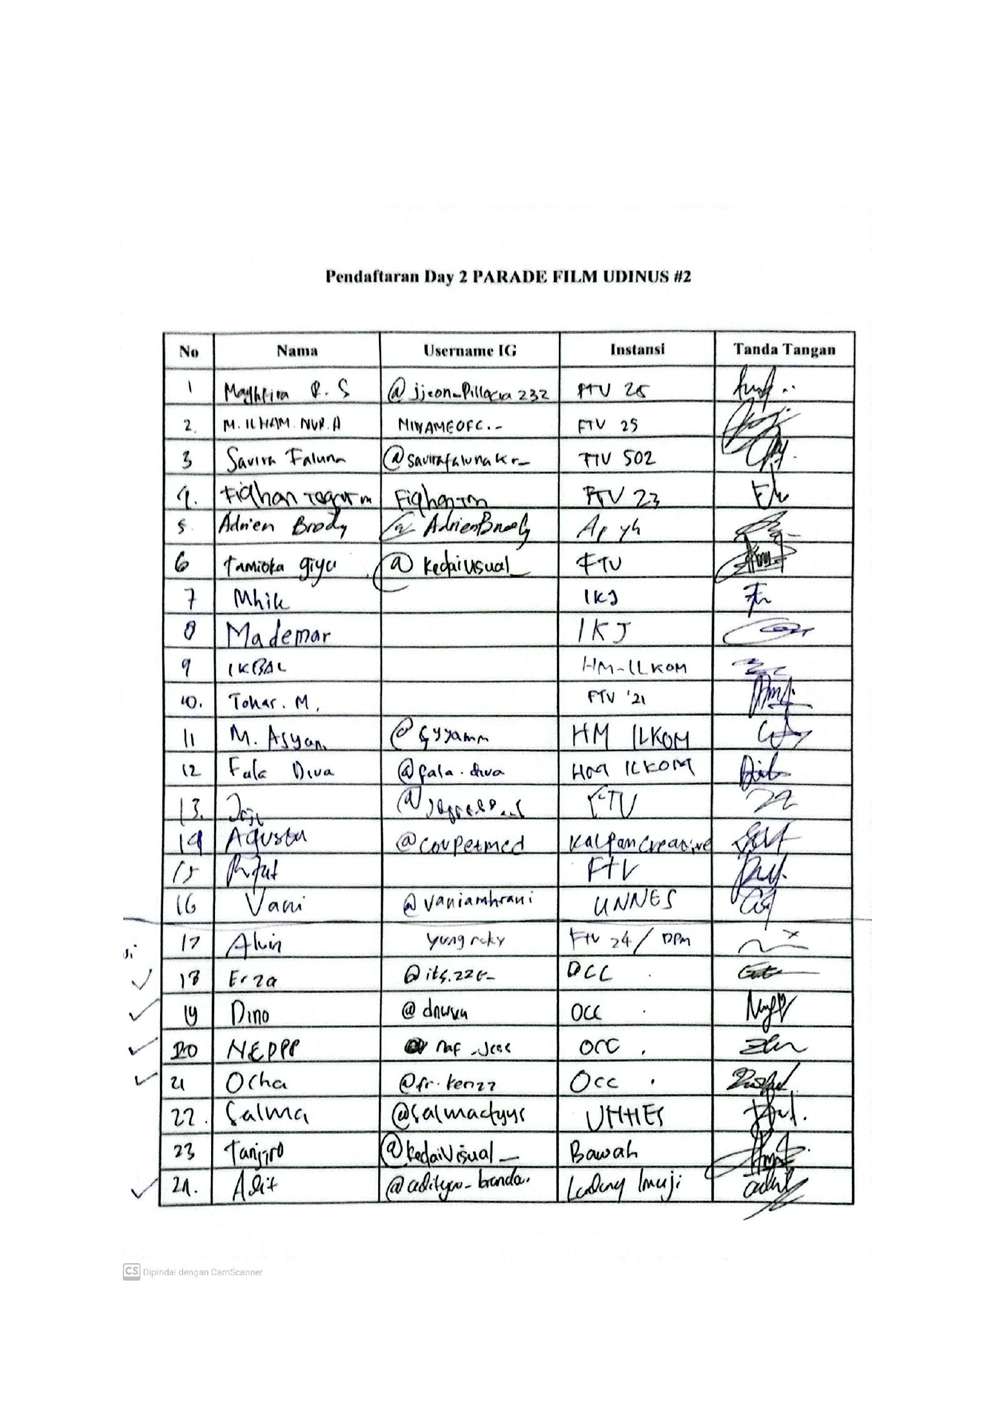 Pendaftaran Day 2 PARADE FILM UDINUS #2
No Nama Username IG Instansi Tanda Tangan
1 R. S FTV 25
2. M. ILHAM NUR. A MIYAMEOFC.- FTV 25
3 Savira Faluna @savirafalunakr_ FTV 502
4. Fiqhan FTV 23
5. Adrien Brody @ AdrienBrody
6 Tamioka giyu @ kedaivisual_ FTV
7 Mhik IKJ
8 Mademar IKJ
9 IKBAL HM-ILKOM
10. Tohar. M. FTV '21
11 M. Asyam @syyamm HM ILKOM
12 Fala Diva @fala.diva HM ILKOM
13. FTV
14 Agusta @coupetmed
15 FTV
16 Vani @vaniamhrani UNNES
17 Alvin yungrcky FTV 24 / DPM
18 Erza DCC
19 Dino OCC
20 NEPPP OCC
21 Ocha @fr.kenzz OCC
22. Salma @salmactyys UNNES
23 Tanjiro @kedaivisual_ Bawah
24. Adit
CS Dipindai dengan CamScanner